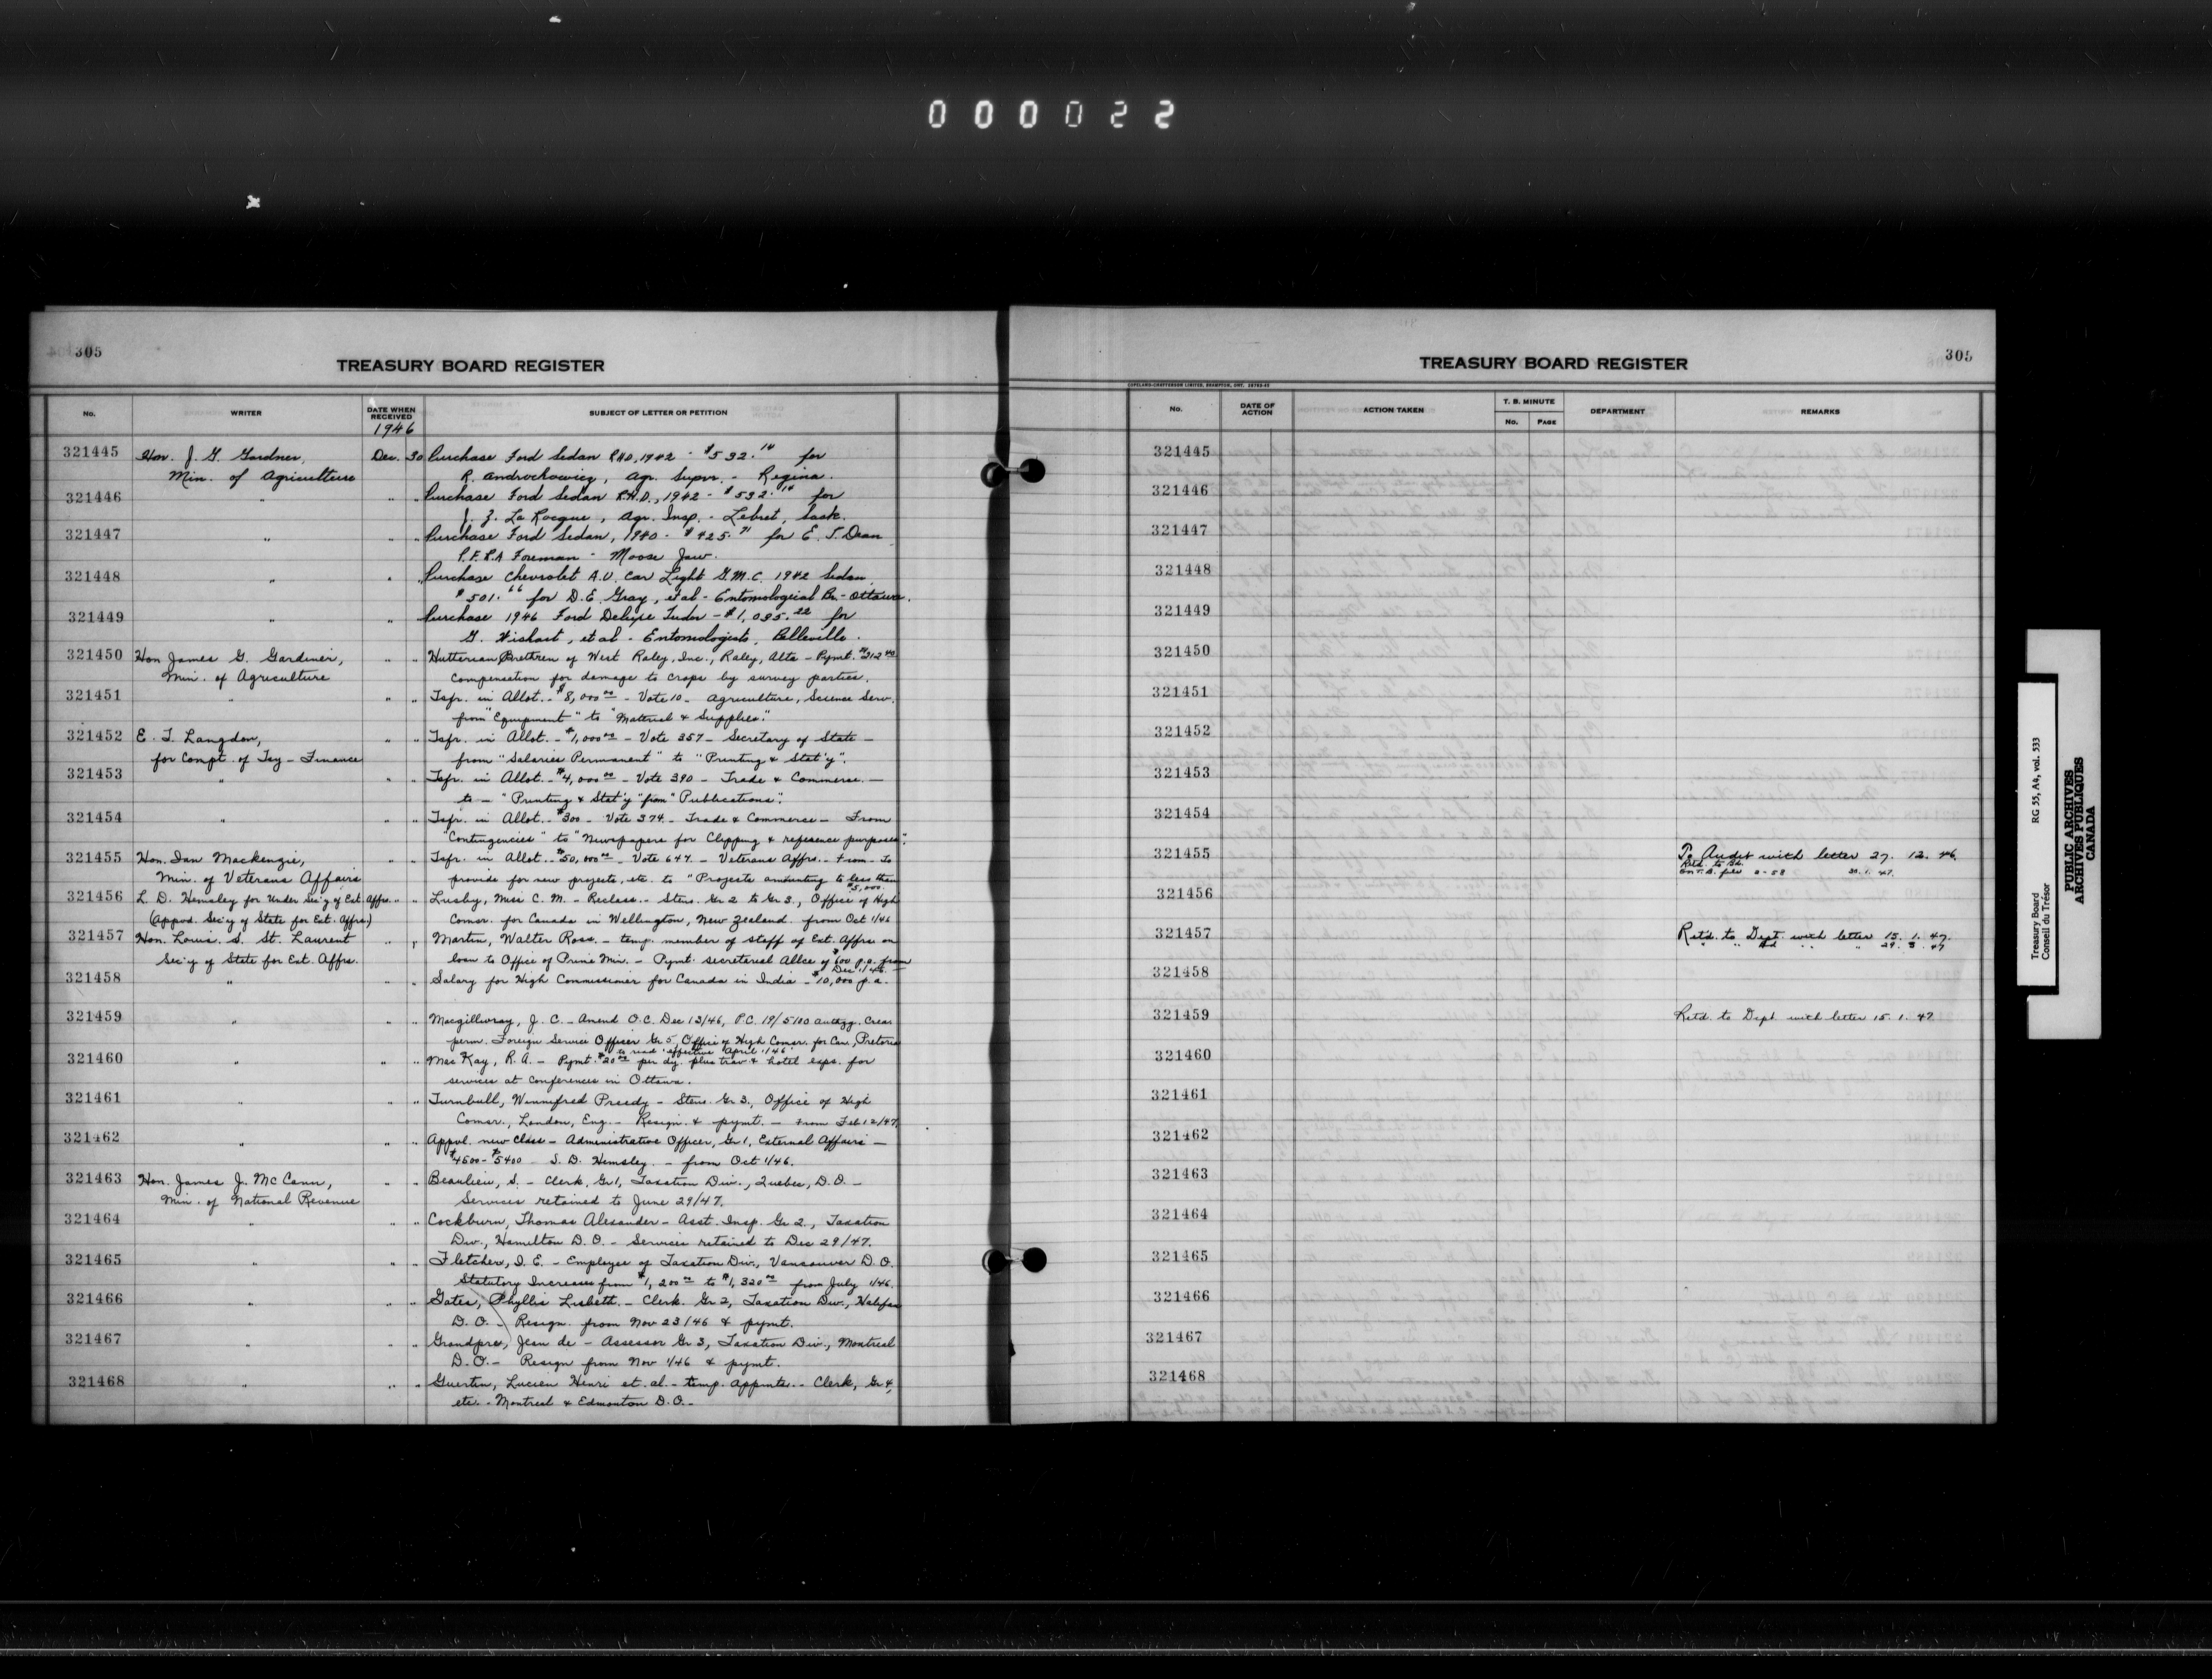 000022
305
TREASURY BOARD REGISTER
No. WRITER DATE WHEN RECEIVED SUBJECT OF LETTER OR PETITION
1946
321445 Hon. J. G. Gardner, Dec. 30 Purchase Ford Sedan R.H.D. 1942 - $532.14 for
Min. of Agriculture R. Androchowicz, Agr. Supvr. - Regina.
321446 " " " Purchase Ford Sedan R.H.D., 1942 - $532.14 for
J. Z. La Rocque, Agr. Insp. - Lebret, Sask.
321447 " " " Purchase Ford Sedan, 1940 - $425.71 for E. T. Dean
P.F.R.A Foreman - Moose Jaw.
321448 " " " Purchase Chevrolet A.U. Car Light G.M.C. 1942 Sedan
$501.66 for D.E. Gray, et al - Entomological Br. - Ottawa.
321449 " " Purchase 1946 Ford Deluxe Tudor - $1,095.22 for
G. Wishart, et al - Entomologists, Belleville.
321450 Hon James G. Gardiner, " " Hutterian Brethren of West Raley, Inc., Raley, Alta - Pymt. $212.40
Min. of Agriculture Compensation for damage to crops by survey parties.
321451 " " " Tsfr. in Allot. - $8,000.00 - Vote 10 - Agriculture, Science Serv.
from "Equipment" to "Material & Supplies".
321452 E. T. Langdon, " " Tsfr. in Allot. - $1,000.00 - Vote 357 - Secretary of State -
for Compt. of Tsy - Finance from "Salaries Permanent" to "Printing & Stat'y".
321453 " " " Tsfr. in Allot. - $4,000.00 - Vote 390 - Trade & Commerce. -
to - "Printing & Stat'y "from" Publications".
321454 " " " Tsfr. in Allot. - $300 - Vote 374 - Trade & Commerce - From
"Contingencies" to "Newspapers for Clipping & reference purposes".
321455 Hon. Ian Mackenzie, " " Tsfr. in Allot. - $50,000.00 - Vote 647 - Veterans Affrs. - From - To
Min. of Veterans Affairs provide for new projects, etc. to "Projects amounting to less than
$5,000.
321456 L. D. Hemsley for Under Sec'y of Ext. Affrs. " " Lusby, Miss C. M. - Reclass. - Steno. Gr 2 to Gr 3., Office of High
(Appvd. Sec'y of State for Ext. Affrs.) Comsr. for Canada in Wellington, New Zealand. from Oct 1/46
321457 Hon. Louis. S. St. Laurent " " Martin, Walter Ross. - temp. member of staff of Ext. Affrs on
Sec'y of State for Ext. Affrs. loan to Office of Prime Min. - Pymt. secretarial Allce of $600 p.a. from
Dec 1/46. -
321458 " " " Salary for High Commissioner for Canada in India - $10,000 p.a.
321459 " " " Macgillivray, J. C. - Amend O.C. Dec 13/46, P.C. 19/5100 authzg. Crea
perm. Foreign Service Officer Gr 5, Office of High Comsr. for Can., Pretoria
to read "effective April 1/46"
321460 " " " MacKay, R. A. - Pymt. $20.00 per dy. plus trav & hotel exps. for
services at conferences in Ottawa.
321461 " " " Turnbull, Winnifred Preedy - Steno. Gr 3., Office of High
Comsr., London, Eng. - Resign. & pymt. - From Feb 12/47.
321462 " " " Appvl. new Class - Administrative Officer, Gr 1, External Affairs -
$4500 - $5400 - S. D. Hemsley. - from Oct 1/46.
321463 Hon. James J. McCann, " " Beaulieu, S. - Clerk, Gr 1, Taxation Div., Quebec, D.O. -
Min. of National Revenue Services retained to June 29/47.
321464 " " " Cockburn, Thomas Alexander - Asst. Insp. Gr 2., Taxation
Div., Hamilton D.O. - Services retained to Dec 29/47.
321465 " " " Fletcher, I. E. - Employee of Taxation Div., Vancouver D.O.
Statutory Increases from $1,200.00 to $1,320.00 from July 1/46.
321466 " " " Gates, Phyllis Lisbeth. - Clerk. Gr 2, Taxation Div., Halifax
D.O. - Resign. from Nov 23/46 & pymt.
321467 " " " Grandpre, Jean de - Assessor Gr 3, Taxation Div., Montreal
D.O. - Resign from Nov 1/46 & pymt.
321468 " " " Guertin, Lucien Henri et. al. - temp. appmts. - Clerk, Gr 4,
etc. - Montreal & Edmonton D.O. -
305
TREASURY BOARD REGISTER
COPELAND-CHATTERSON LIMITED, BRAMPTON, ONT.
No. DATE OF ACTION ACTION TAKEN T. B. MINUTE No. PAGE DEPARTMENT REMARKS
321445
321446
321447
321448
321449
321450
321451
321452
321453
321454
321455 To Audit with letter 27. 12. 46.
Retd. to Bd.
on T.B. file 2-58 30. 1. 47.
321456
321457 Retd. to Dept. with letter 15. 1. 47.
" " " " " 29. 3. 47
321458
321459 Retd. to Dept with letter 15. 1. 47
321460
321461
321462
321463
321464
321465
321466
321467
321468
Treasury Board
Conseil du Trésor
RG 55, A4, vol. 533
PUBLIC ARCHIVES
ARCHIVES PUBLIQUES
CANADA